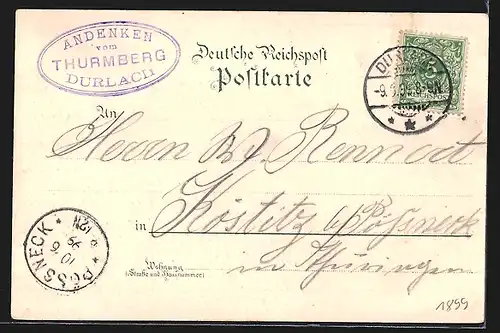 ANDENKEN
vom
THURMBERG
DURLACH
Deutsche Reichspost
Postkarte
An
Herrn Rennert
in Köstitz b/Pößneck
in Thüringen
Wohnung
(Straße und Hausnummer)
PÖSSNECK
10 6 99
1899